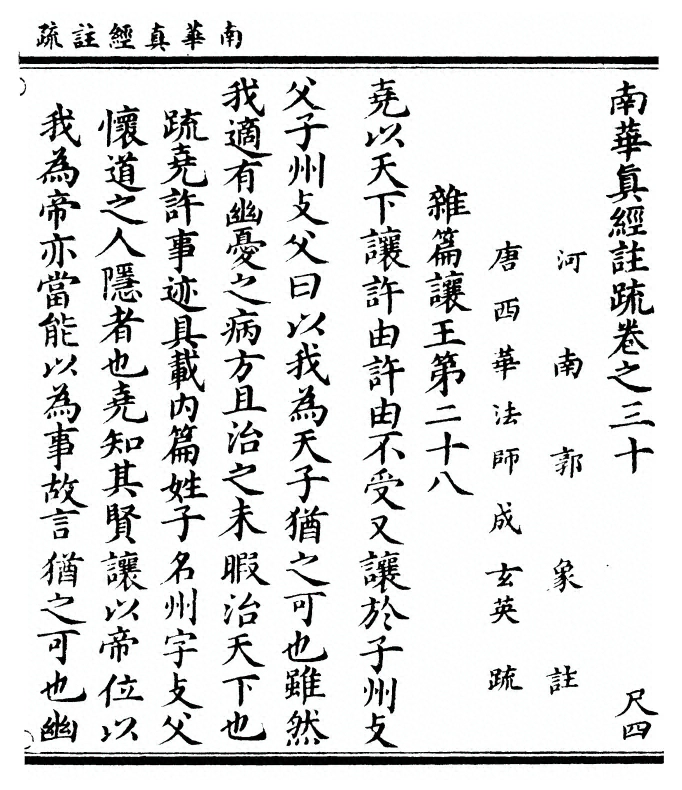 南華真經註疏
南華真經註疏卷之三十 尺四
河南郭象註
唐西華法師成玄英疏
雜篇讓王第二十八
堯以天下讓許由許由不受又讓於子州攴
父子州攴父曰以我為天子猶之可也雖然
我適有幽憂之病方且治之未暇治天下也
疏堯許事迹具載内篇姓子名州字攴父
懷道之人隱者也堯知其賢讓以帝位以
我為帝亦當能以為事故言猶之可也幽